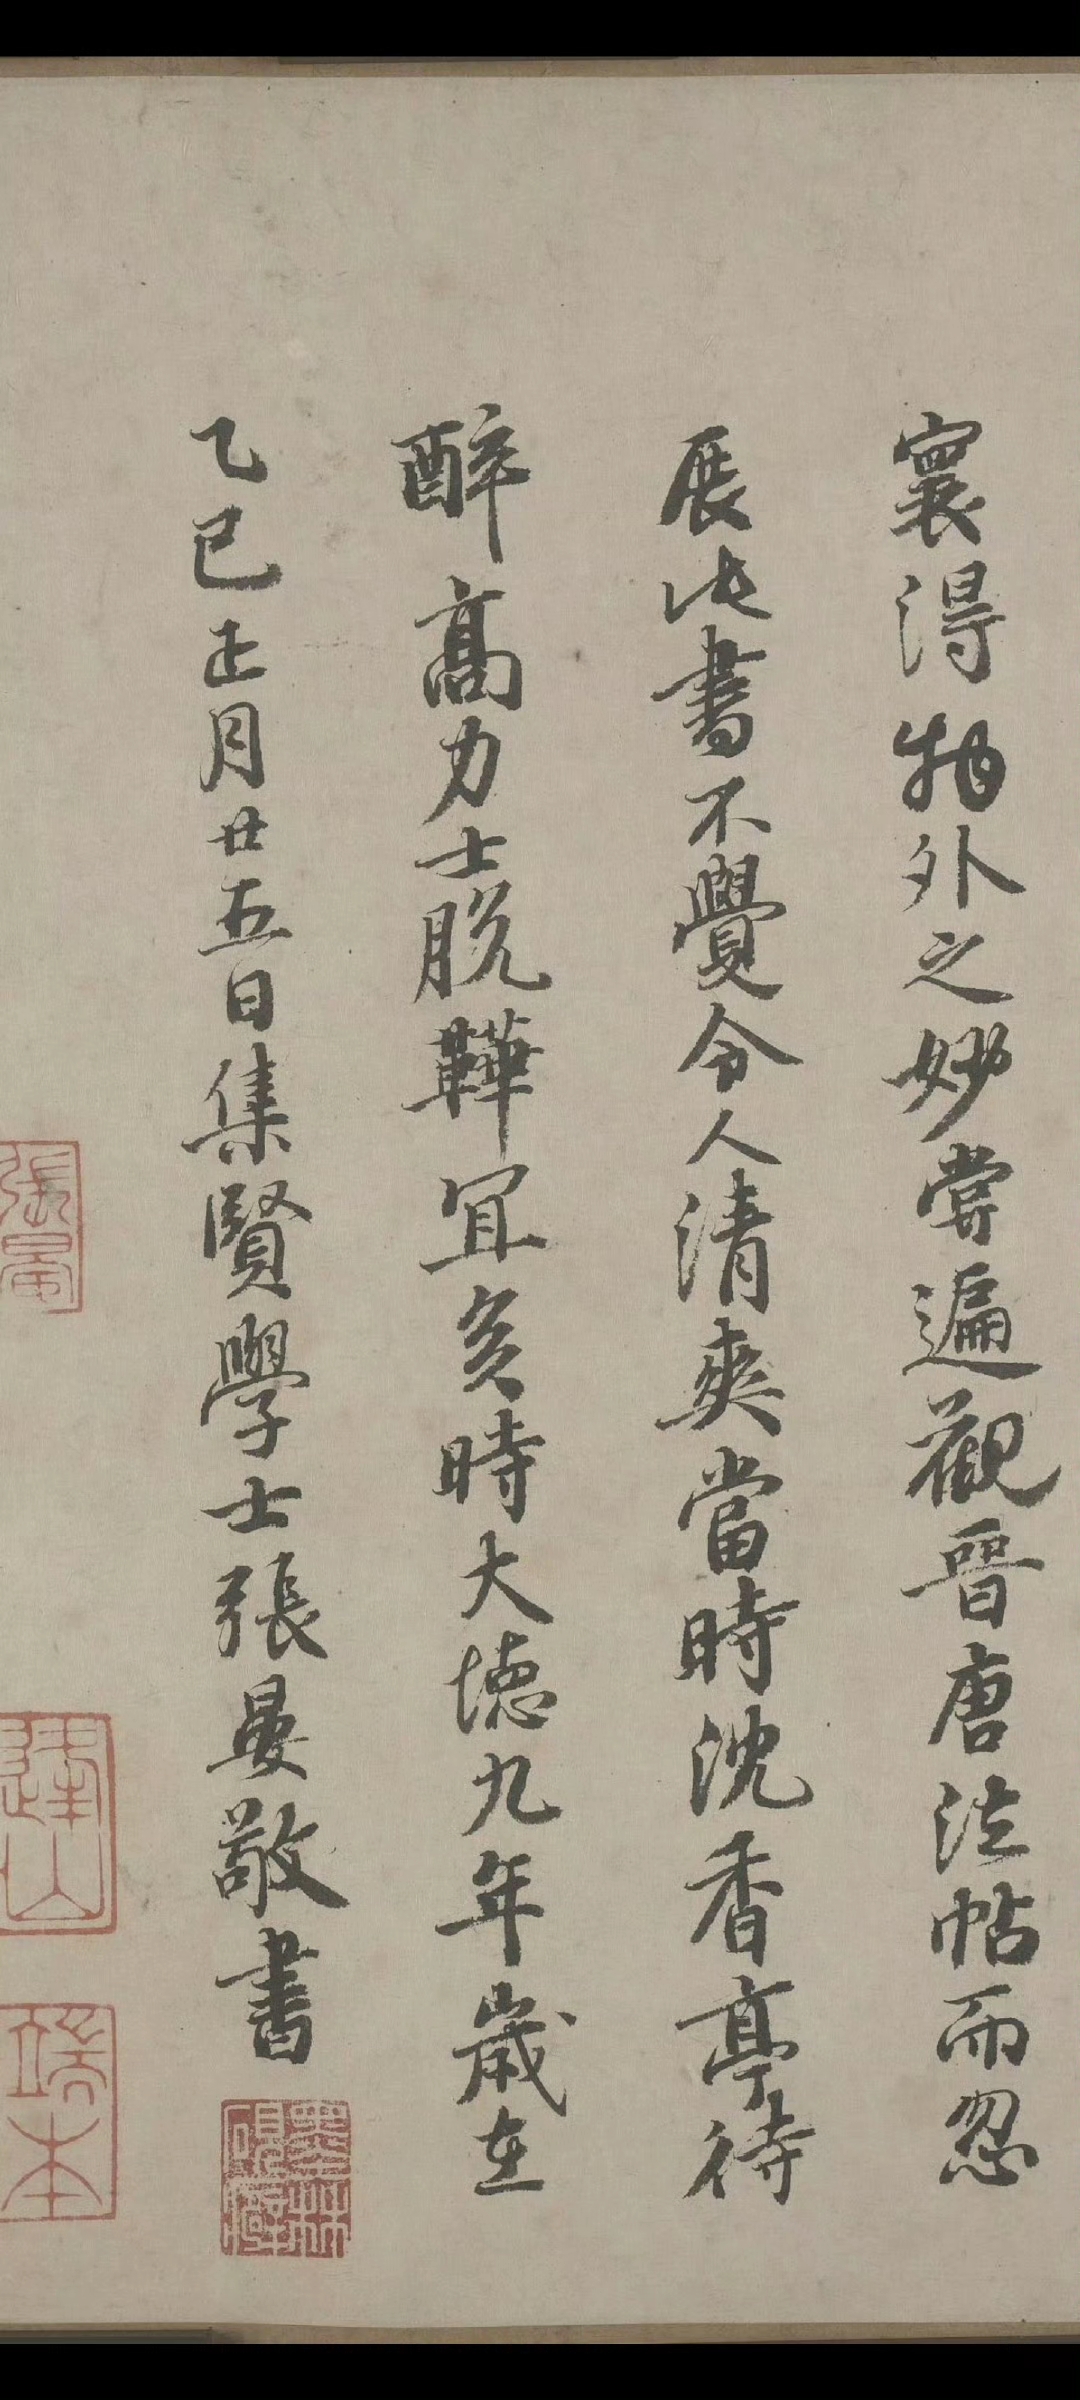 寰得物外之妙嘗遍觀晉唐法帖而忽
展此書不覺令人清爽當時沈香亭待
醉高力士脫鞾宜矣時大德九年歲在
乙巳正月廿五日集賢學士張晏敬書
張晏
端本